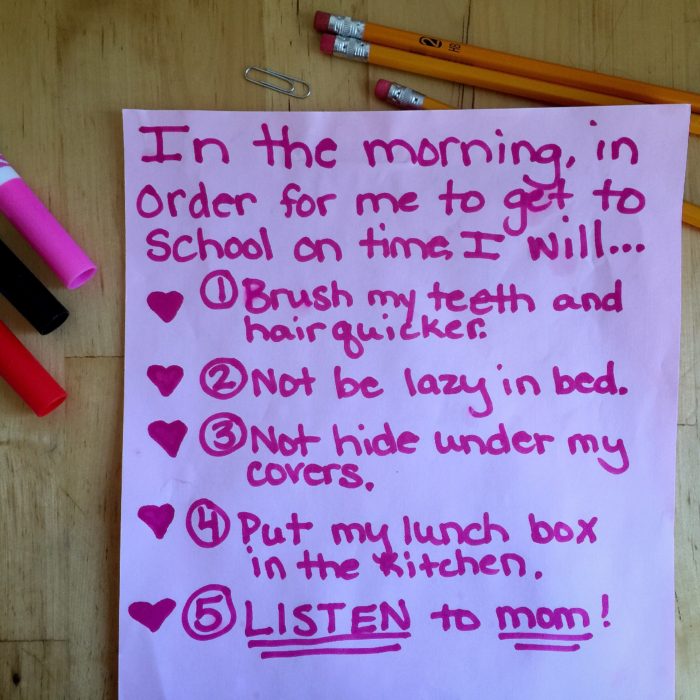 2 HB
In the morning, in
order for me to get to
School on time, I will...
① Brush my teeth and
hair quicker.
② Not be lazy in bed.
③ Not hide under my
covers.
④ Put my lunch box
in the kitchen.
⑤ LISTEN to mom!